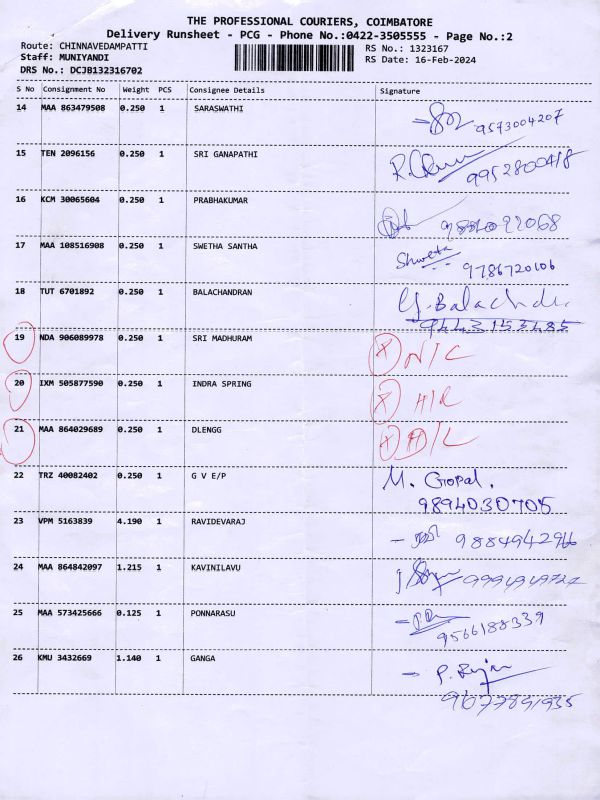 THE PROFESSIONAL COURIERS, COIMBATORE
Delivery Runsheet - PCG - Phone No.:0422-3505555 - Page No.:2
Route: CHINNAVEDAMPATTI RS No.: 1323167
Staff: MUNIYANDI RS Date: 16-Feb-2024
DRS No.: DCJB132316702
S No Consignment No Weight PCS Consignee Details Signature
14 MAA 863479508 0.250 1 SARASWATHI 9573004207
15 TEN 2096156 0.250 1 SRI GANAPATHI 9952800418
16 KCM 30065604 0.250 1 PRABHAKUMAR
17 MAA 108516908 0.250 1 SWETHA SANTHA Shweta
9786720106
18 TUT 6701892 0.250 1 BALACHANDRAN G. Balachdr.
9443153485
19 NDA 906089978 0.250 1 SRI MADHURAM X N/C
20 IXM 505877590 0.250 1 INDRA SPRING X
21 MAA 864029689 0.250 1 DLENGG X D/L
22 TRZ 40082402 0.250 1 G V E/P M. Gopal.
9894030705
23 VPM 5163839 4.190 1 RAVIDEVARAJ 9884942966
24 MAA 864842097 1.215 1 KAVINILAVU
25 MAA 573425666 0.125 1 PONNARASU
9566188339
26 KMU 3432669 1.140 1 GANGA